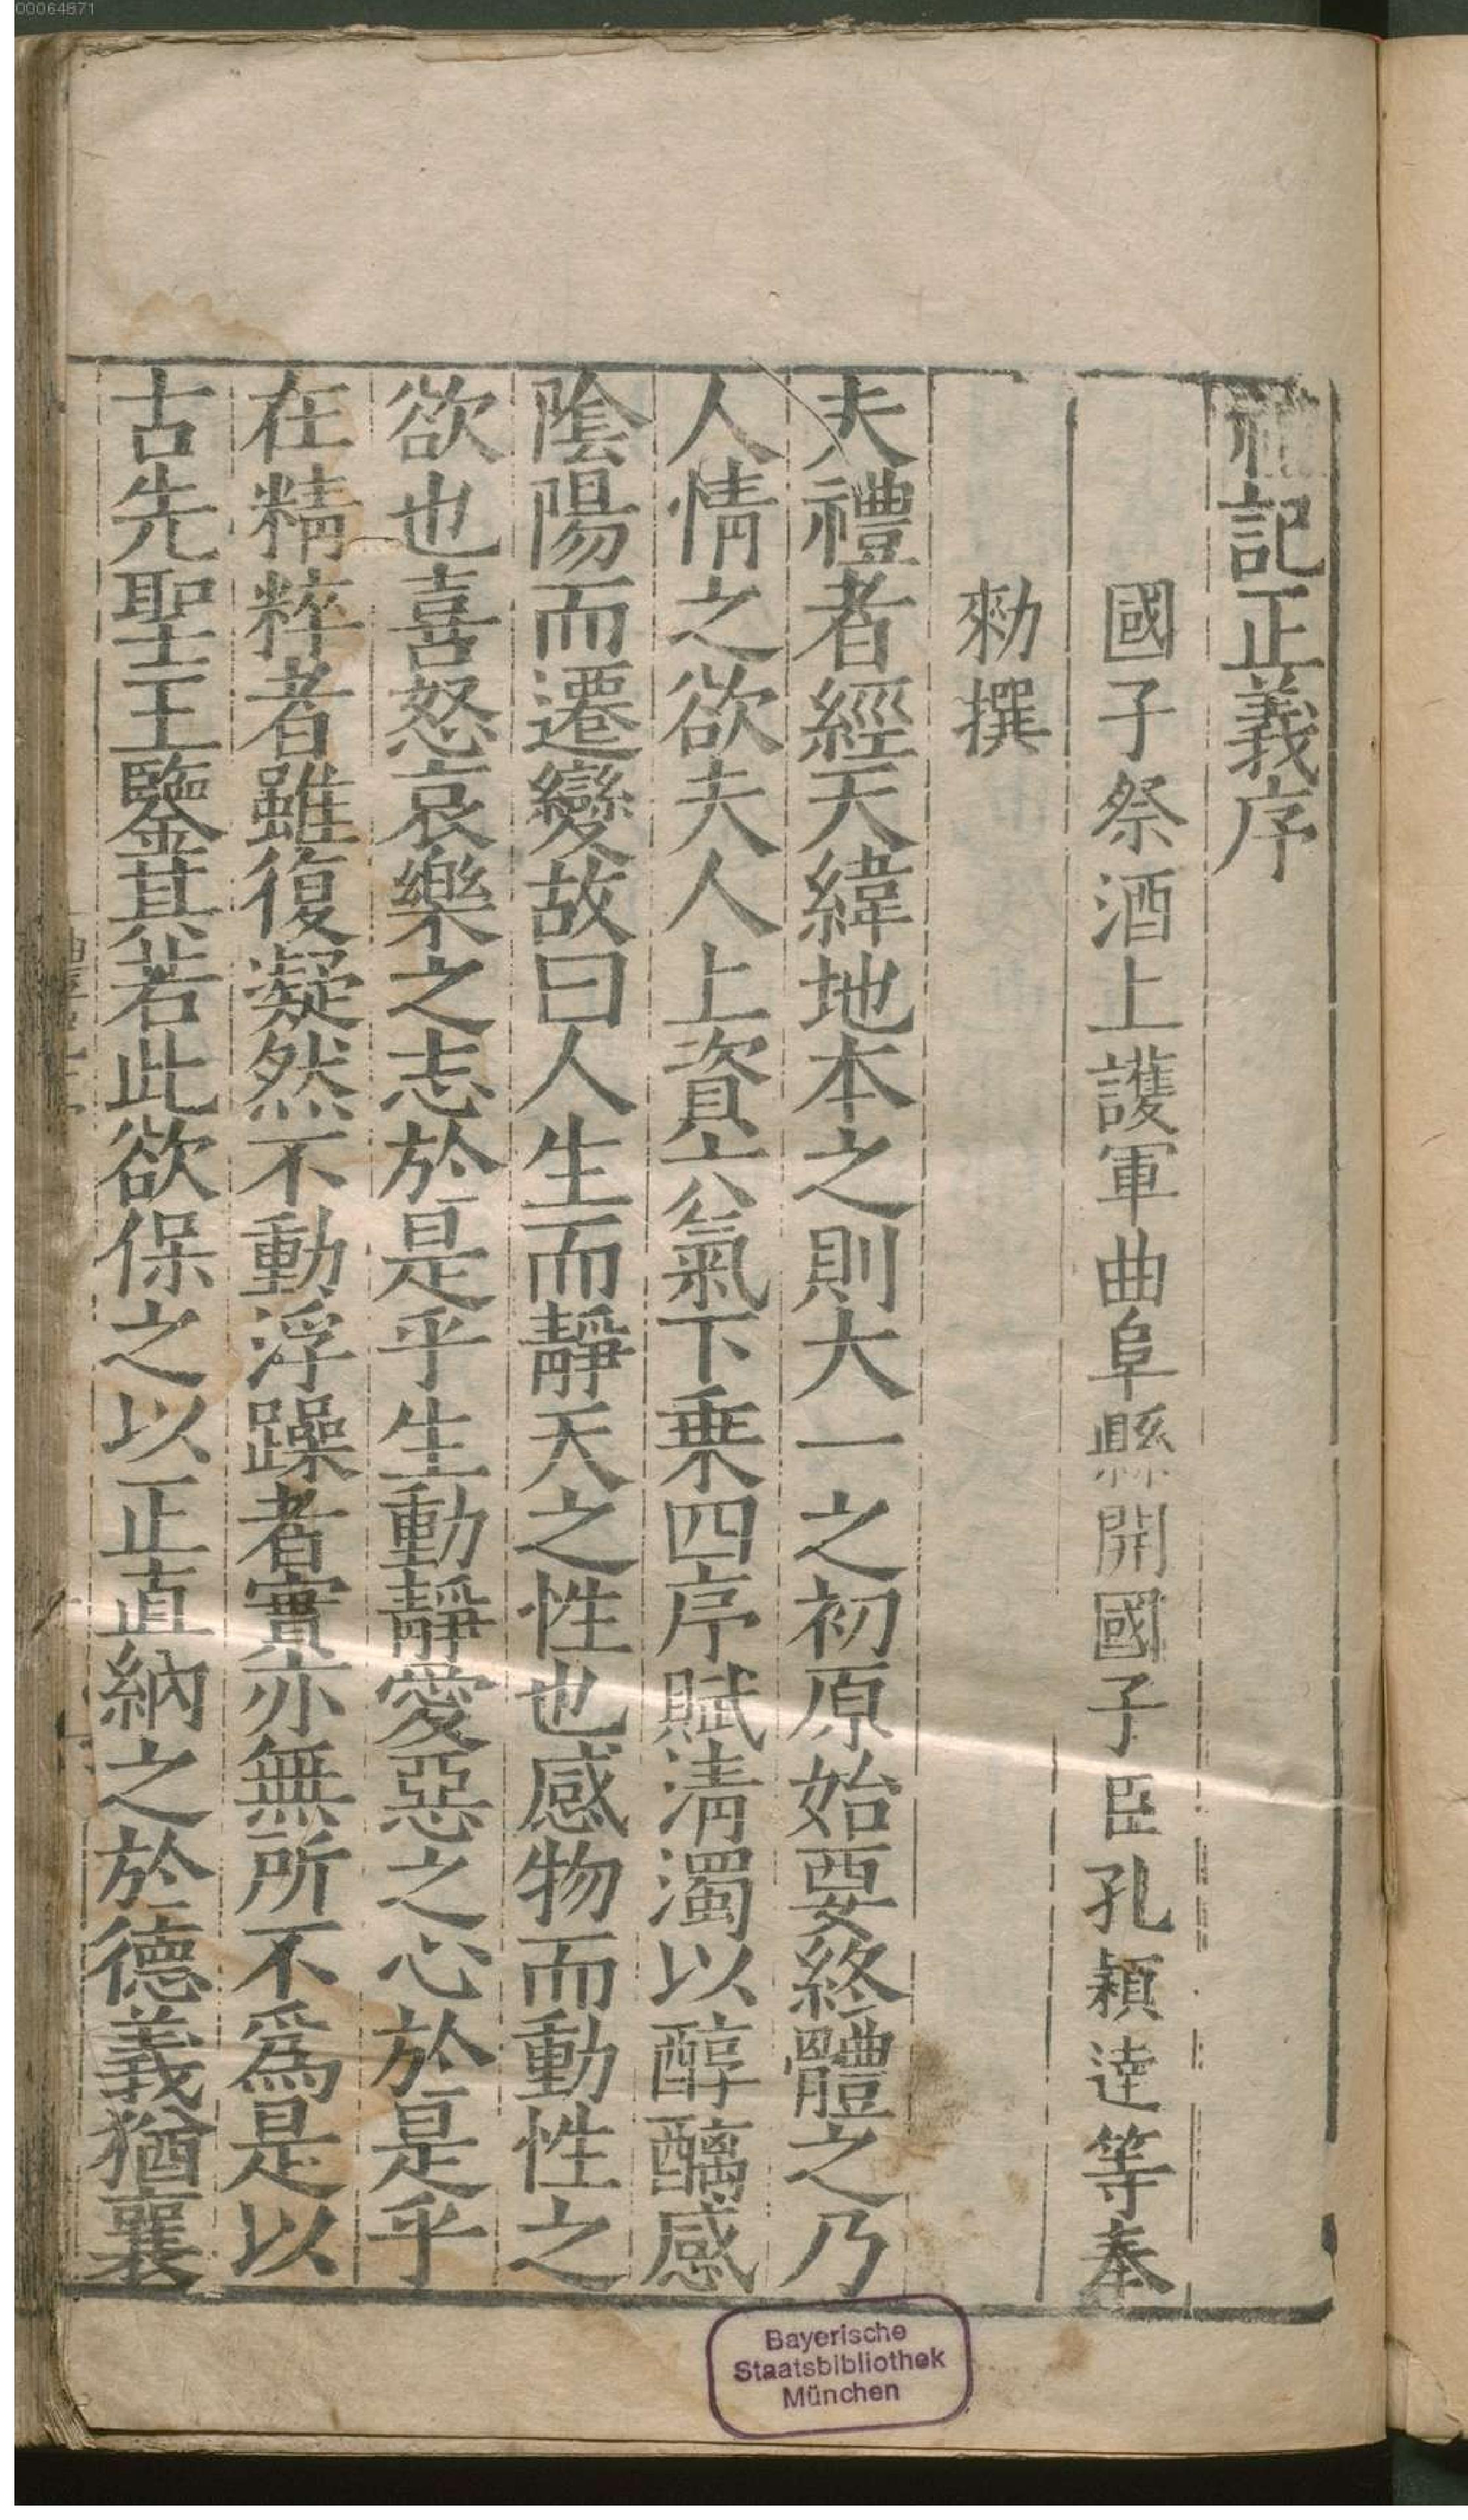 禮記正義序
國子祭酒上護軍曲阜縣開國子臣孔穎達等奉
勑撰
夫禮者經天緯地本之則大一之初原始要終體之乃
人情之欲夫人上資六氣下乗四序賦淸濁以醇醨感
陰陽而遷變故曰人生而靜天之性也感物而動性之
欲也喜怒哀樂之志於是乎生動靜愛惡之心於是乎
在精粹者雖復凝然不動浮躁者實亦無所不爲是以
古先聖王鑒其若此欲保之以正直納之於德義猶襄
Bayerische
Staatsbibliothek
München
00064871